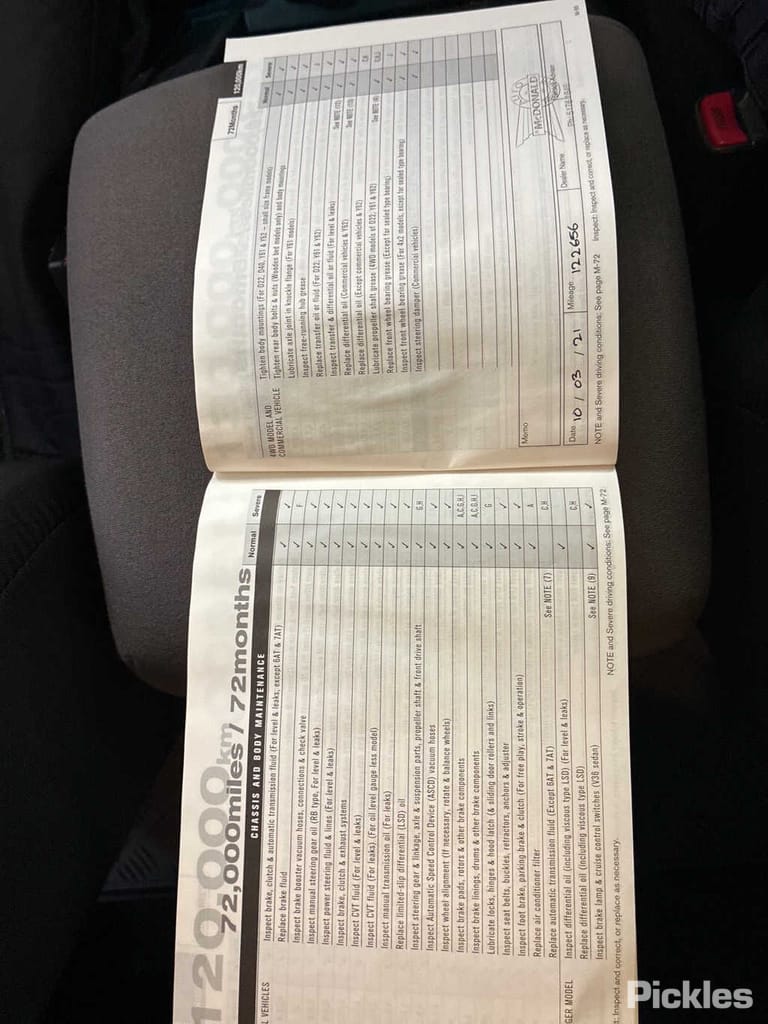 120,000km
72,000miles / 72months
CHASSIS AND BODY MAINTENANCE
Normal Severe
L VEHICLES
Inspect brake, clutch & automatic transmission fluid (For level & leaks, except 6AT & 7AT) ✓ ✓
Replace brake fluid ✓
Inspect brake booster vacuum hoses, connections & check valve F
Inspect manual steering gear oil (RB type, For level & leaks) ✓ ✓
Inspect power steering fluid & lines (For level & leaks) ✓ ✓
Inspect brake, clutch & exhaust systems ✓ ✓
Inspect CVT fluid (For level & leaks) ✓ ✓
Inspect CVT fluid (For leaks), (For oil level gauge less model) ✓ ✓
Inspect manual transmission oil (For leaks) ✓ ✓
Replace limited-slip differential (LSD) oil ✓ ✓
Inspect steering gear & linkage, axle & suspension parts, propeller shaft & front drive shaft ✓ G,H
Inspect Automatic Speed Control Device (ASCD) vacuum hoses ✓ ✓
Inspect wheel alignment (If necessary, rotate & balance wheels) ✓ ✓
Inspect brake pads, rotors & other brake components ✓ A,C,G,H,I
Inspect brake linings, drums & other brake components ✓ A,C,G,H,I
Lubricate locks, hinges & hood latch (& sliding door rollers and links) ✓ G
Inspect seat belts, buckles, retractors, anchors & adjuster ✓ ✓
Inspect foot brake, parking brake & clutch (For free play, stroke & operation) ✓ ✓
Replace air conditioner filter ✓ A
Replace automatic transmission fluid (Except 6AT & 7AT) See NOTE (7) C,H
GER MODEL
Inspect differential oil (including viscous type LSD) (For level & leaks) ✓
Replace differential oil (including viscous type LSD) C,H
Inspect brake lamp & cruise control switches (V36 sedan) See NOTE (9) ✓ ✓
NOTE and Severe driving conditions: See page M-72
t: Inspect and correct, or replace as necessary.
72Months 120,000km
Normal Severe
4WD MODEL AND
COMMERCIAL VEHICLE
Tighten body mountings (For D22, D40, Y61 & Y62 – small size frame models) ✓ ✓
Tighten rear body bolts & nuts (Wooden bed models only) and body mountings ✓ ✓
Lubricate axle joint in knuckle flange (For Y61 models) ✓
Inspect free-running hub grease ✓ ✓
Replace transfer oil or fluid (For D22, Y61 & Y62)
Inspect transfer & differential oil or fluid (For level & leaks) ✓ ✓
Replace differential oil (Commercial vehicles & Y62) See NOTE (12) ✓
Replace differential oil (Except commercial vehicles & Y62) See NOTE (13)
Lubricate propeller shaft grease (4WD models of D22, Y61 & Y62)
Replace front wheel bearing grease (Except for sealed type bearing)
Inspect front wheel bearing grease (For 4x2 models, except for sealed type bearing) ✓ ✓
Inspect steering damper (Commercial vehicles) ✓ ✓
Memo
McDONALD
Date 10 / 03 / 21 Mileage 122656 Dealer Name
NOTE and Severe driving conditions: See page M-72 Inspect: Inspect and correct, or replace as necessary.
Pickles